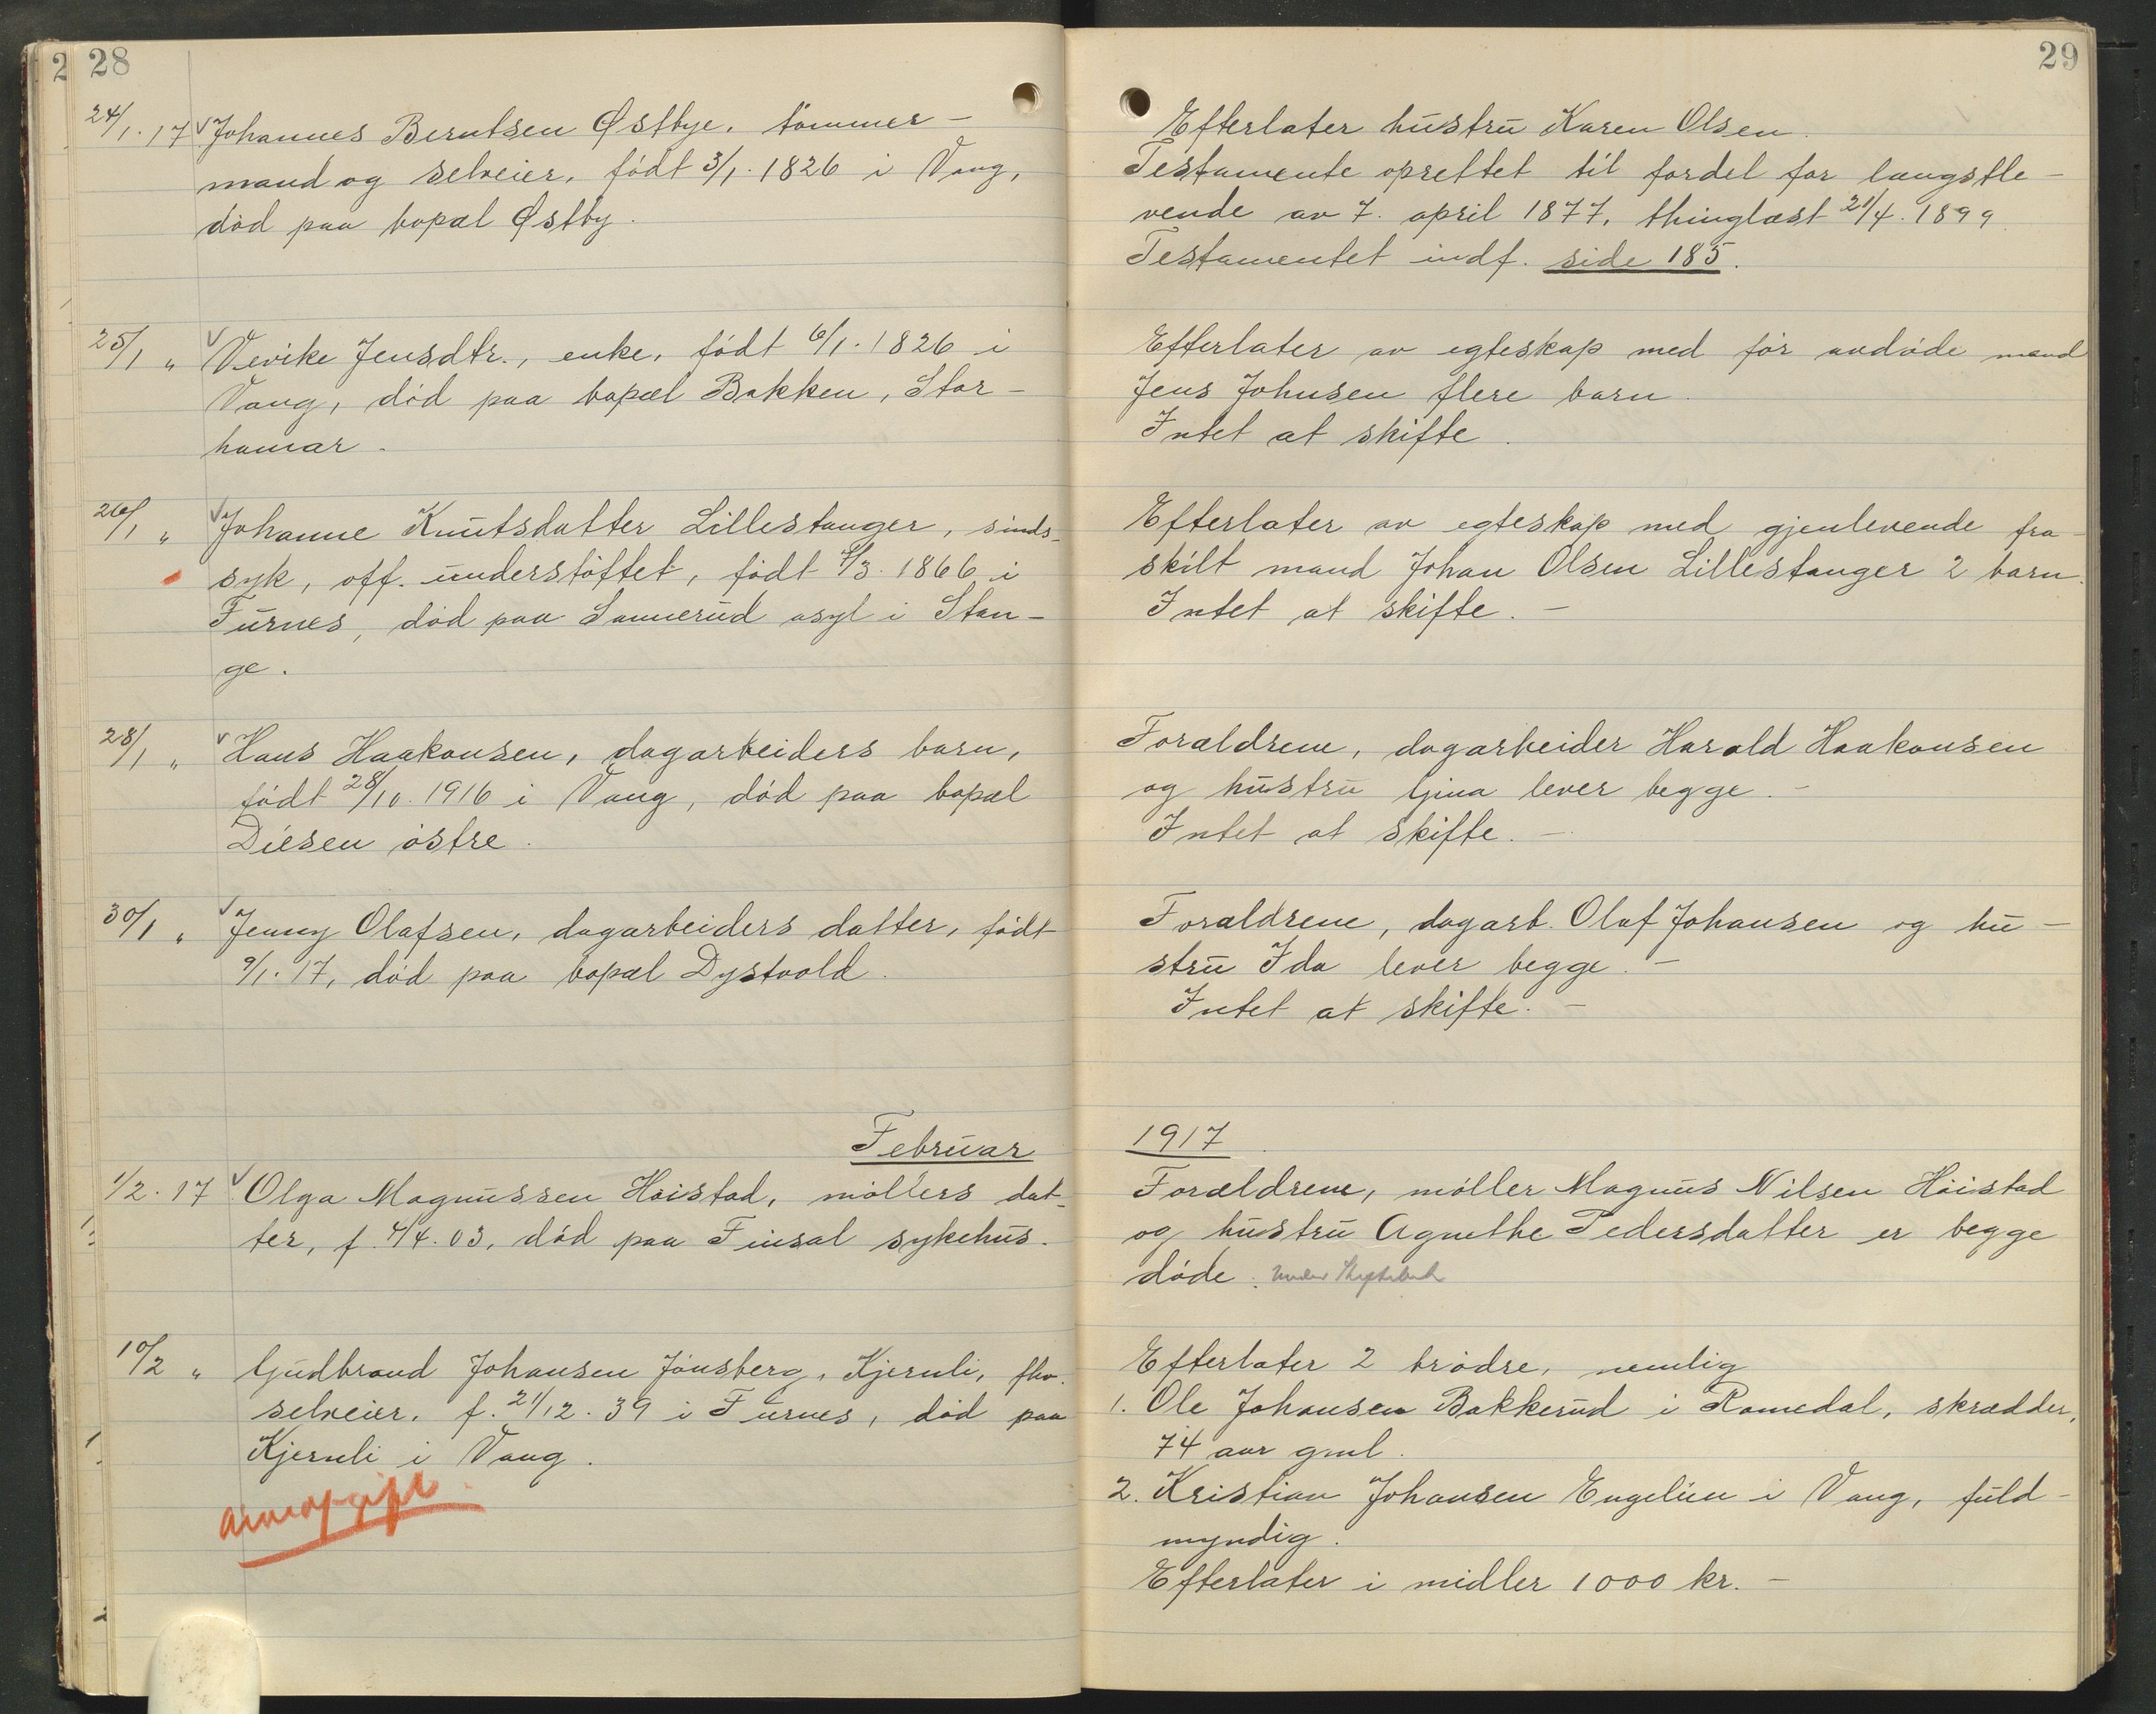 28
24/1. 17 Johannes Berntsen Østbye, tømmer-
mand og selveier, født 3/1. 1826 i Vang,
død paa bopæl Østby.
25/1 „ Vevike Jensdtr., enke, født 6/1. 1826 i
Vang, død paa bopæl Bakken, Stor-
hamar.
26/1 „ Johanne Knutsdatter Lillestanger, sinds-
syk, off. understøttet, født /3. 1866 i
Furnes, død paa Sannerud asyl i Stan-
ge.
28/1 „ Hans Haakonsen, dagarbeiders barn,
født 28/10. 1916 i Vang, død paa bopæl
Diesen østre.
30/1 „ Jenny Olafsen, dagarbeiders datter, født
9/1. 17, død paa bopæl Dystvold.
Februar
1/2. 17 Olga Magnussen Høistad, møllers dat-
ter, f. 4/4. 03, død paa Finsal sykehus.
10/2 „ Gudbrand Johansen Jønsberg, Kjernli, fhv.
selveier, f. 21/12. 39 i Furnes, død paa
Kjernli i Vang.
arveavgift.
29
Efterlater hustru Karen Olsen.
Testamente oprettet til fordel for længstle-
vende av 7. april 1877, thinglæst 21/4. 1899.
Testamentet indf. side 185.
Efterlater av egteskap med før avdøde mand
Jens Johnsen flere barn.
Intet at skifte.
Efterlater av egteskap med gjenlevende fra-
skilt mand Johan Olsen Lillestanger 2 barn.
Intet at skifte. -
Forældrene, dagarbeider Harald Haakonsen
og hustru Gina lever begge. -
Intet at skifte. -
Forældrene, dagarb. Olaf Johansen og hu-
stru Ida lever begge. -
Intet at skifte. -
1917
Forældrene, møller Magnus Nilsen Høistad
og hustru Agnethe Pedersdatter er begge
døde.
Efterlater 2 brødre, nemlig
1. Ole Johansen Bakkerud i Romedal, skrædder,
74 aar gml.
2. Kristian Johansen Engelien i Vang, fuld-
myndig.
Efterlater i midler 1000 kr. -